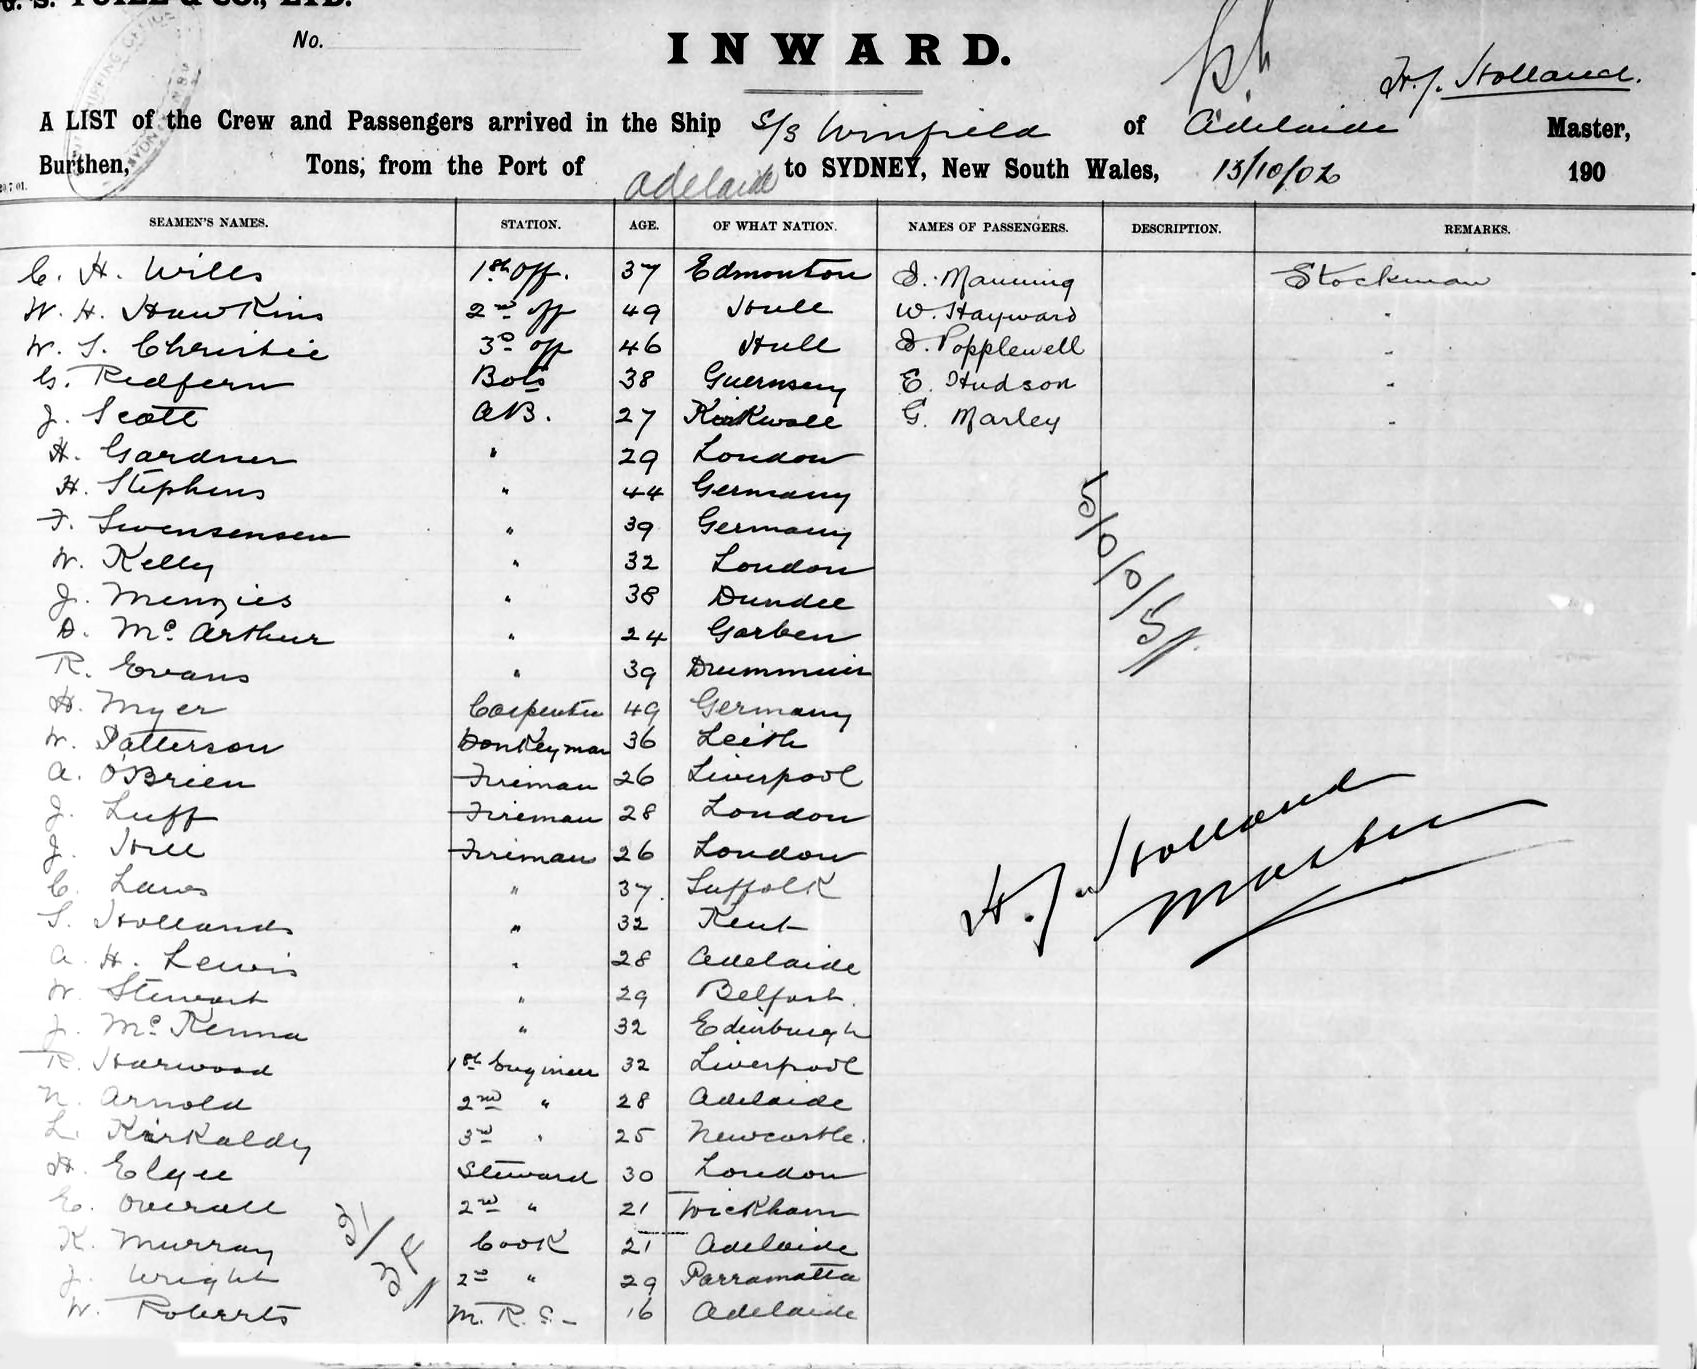 & CO., LTD.
No.
INWARD.
H. J. Holland.
A LIST of the Crew and Passengers arrived in the Ship S/S Winfield of Adelaide Master,
Burthen, Tons, from the Port of Adelaide to SYDNEY, New South Wales, 13/10/02 190
SEAMEN'S NAMES. STATION. AGE. OF WHAT NATION. NAMES OF PASSENGERS. DESCRIPTION. REMARKS.
C. H. Wills 1st Off. 37 Edmonton Manning Stockman
W. H. Hawkins 2nd off 49 Hull W. Hayward "
W. S. Christie 3rd off 46 Hull Popplewell "
G. Redfern Bos 38 Guernsey E. Hudson "
J. Scott AB. 27 Kirkwall G. Marley "
H. Gardner " 29 London
H. Stephens " 44 Germany
F. Swensensen " 39 Germany
W. Kelly " 32 London
J. Menzies " 38 Dundee
D. McArthur " 24 Garben
R. Evans " 39 Drummuir
H. Myer Carpenter 49 Germany
W. Patterson Donkeyman 36 Leith
A. O'Brien Fireman 26 Liverpool
J. Luff Fireman 28 London
J. Hill Fireman 26 London
C. Laws " 37 Suffolk
S. Hollands " 32 Kent
A. H. Lewis " 28 Adelaide
W. Stewart " 29 Belfast.
J. McKenna " 32 Edinburgh
R. Harwood 1st Engineer 32 Liverpool
N. Arnold 2nd " 28 Adelaide
L. Kirkaldy 3rd " 25 Newcastle.
H. Elgee Steward 30 London
E. Overall 2nd " 21 Wickham
K. Murray Cook 21 Adelaide
J. Wright 2nd " 29 Parramatta
W. Roberts M. R. S. 16 Adelaide
5/0/0/5//
H. J. Holland
Master